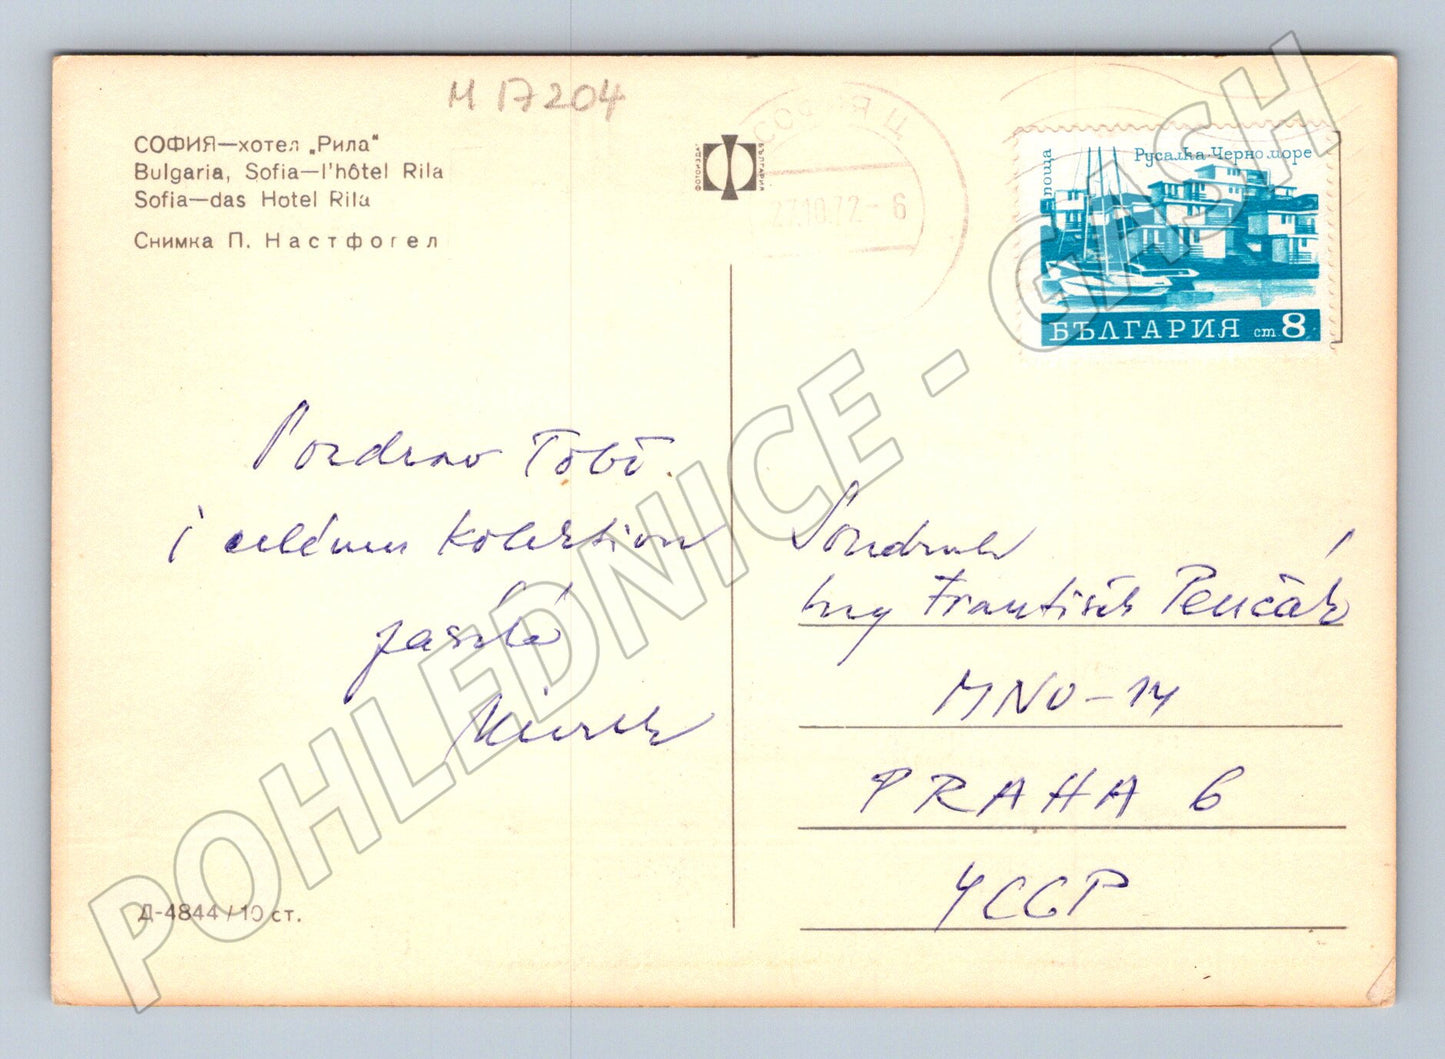 M 17204
СОФИЯ—хотел „Рила“
Bulgaria, Sofia—l'hôtel Rila
Sofia—das Hotel Rila
Снимка П. Настфогел
ФОТОИЗДАТ
БЪЛГАРИЯ
СОФИЯ Ц
27.10.72-6
поща
Русалка-Черно море
БЪЛГАРИЯ ст. 8
Pozdrav Tobě
i celému kolektivu
zasílá
Soudruh
Ing František Penčák
MNO-14
PRAHA 6
ЧССР
Д-4844/10 ст.
POHLEDNICE - GASH